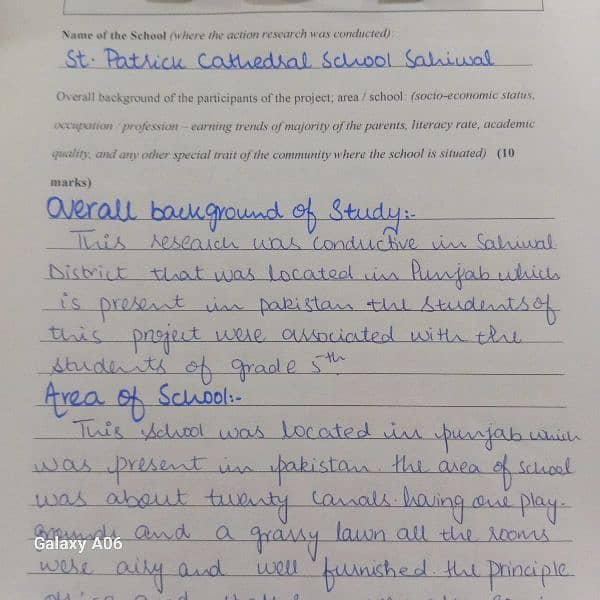 Name of the School (where the action research was conducted):
St. Patrick Cathedral School Sahiwal
Overall background of the participants of the project; area / school: (socio-economic status,
occupation / profession – earning trends of majority of the parents, literacy rate, academic
quality, and any other special trait of the community where the school is situated) (10
marks)
Overall background of Study:-
This research was conductive in Sahiwal
District that was located in Punjab which
is present in pakistan the students of
this project were associated with the
students of grade 5th
Area of School:-
This school was located in punjab which
was present in pakistan. the area of school
was about twenty canals. having one play-
grounds and a grassy lawn all the rooms
Galaxy A06
were airy and well furnished. the principle